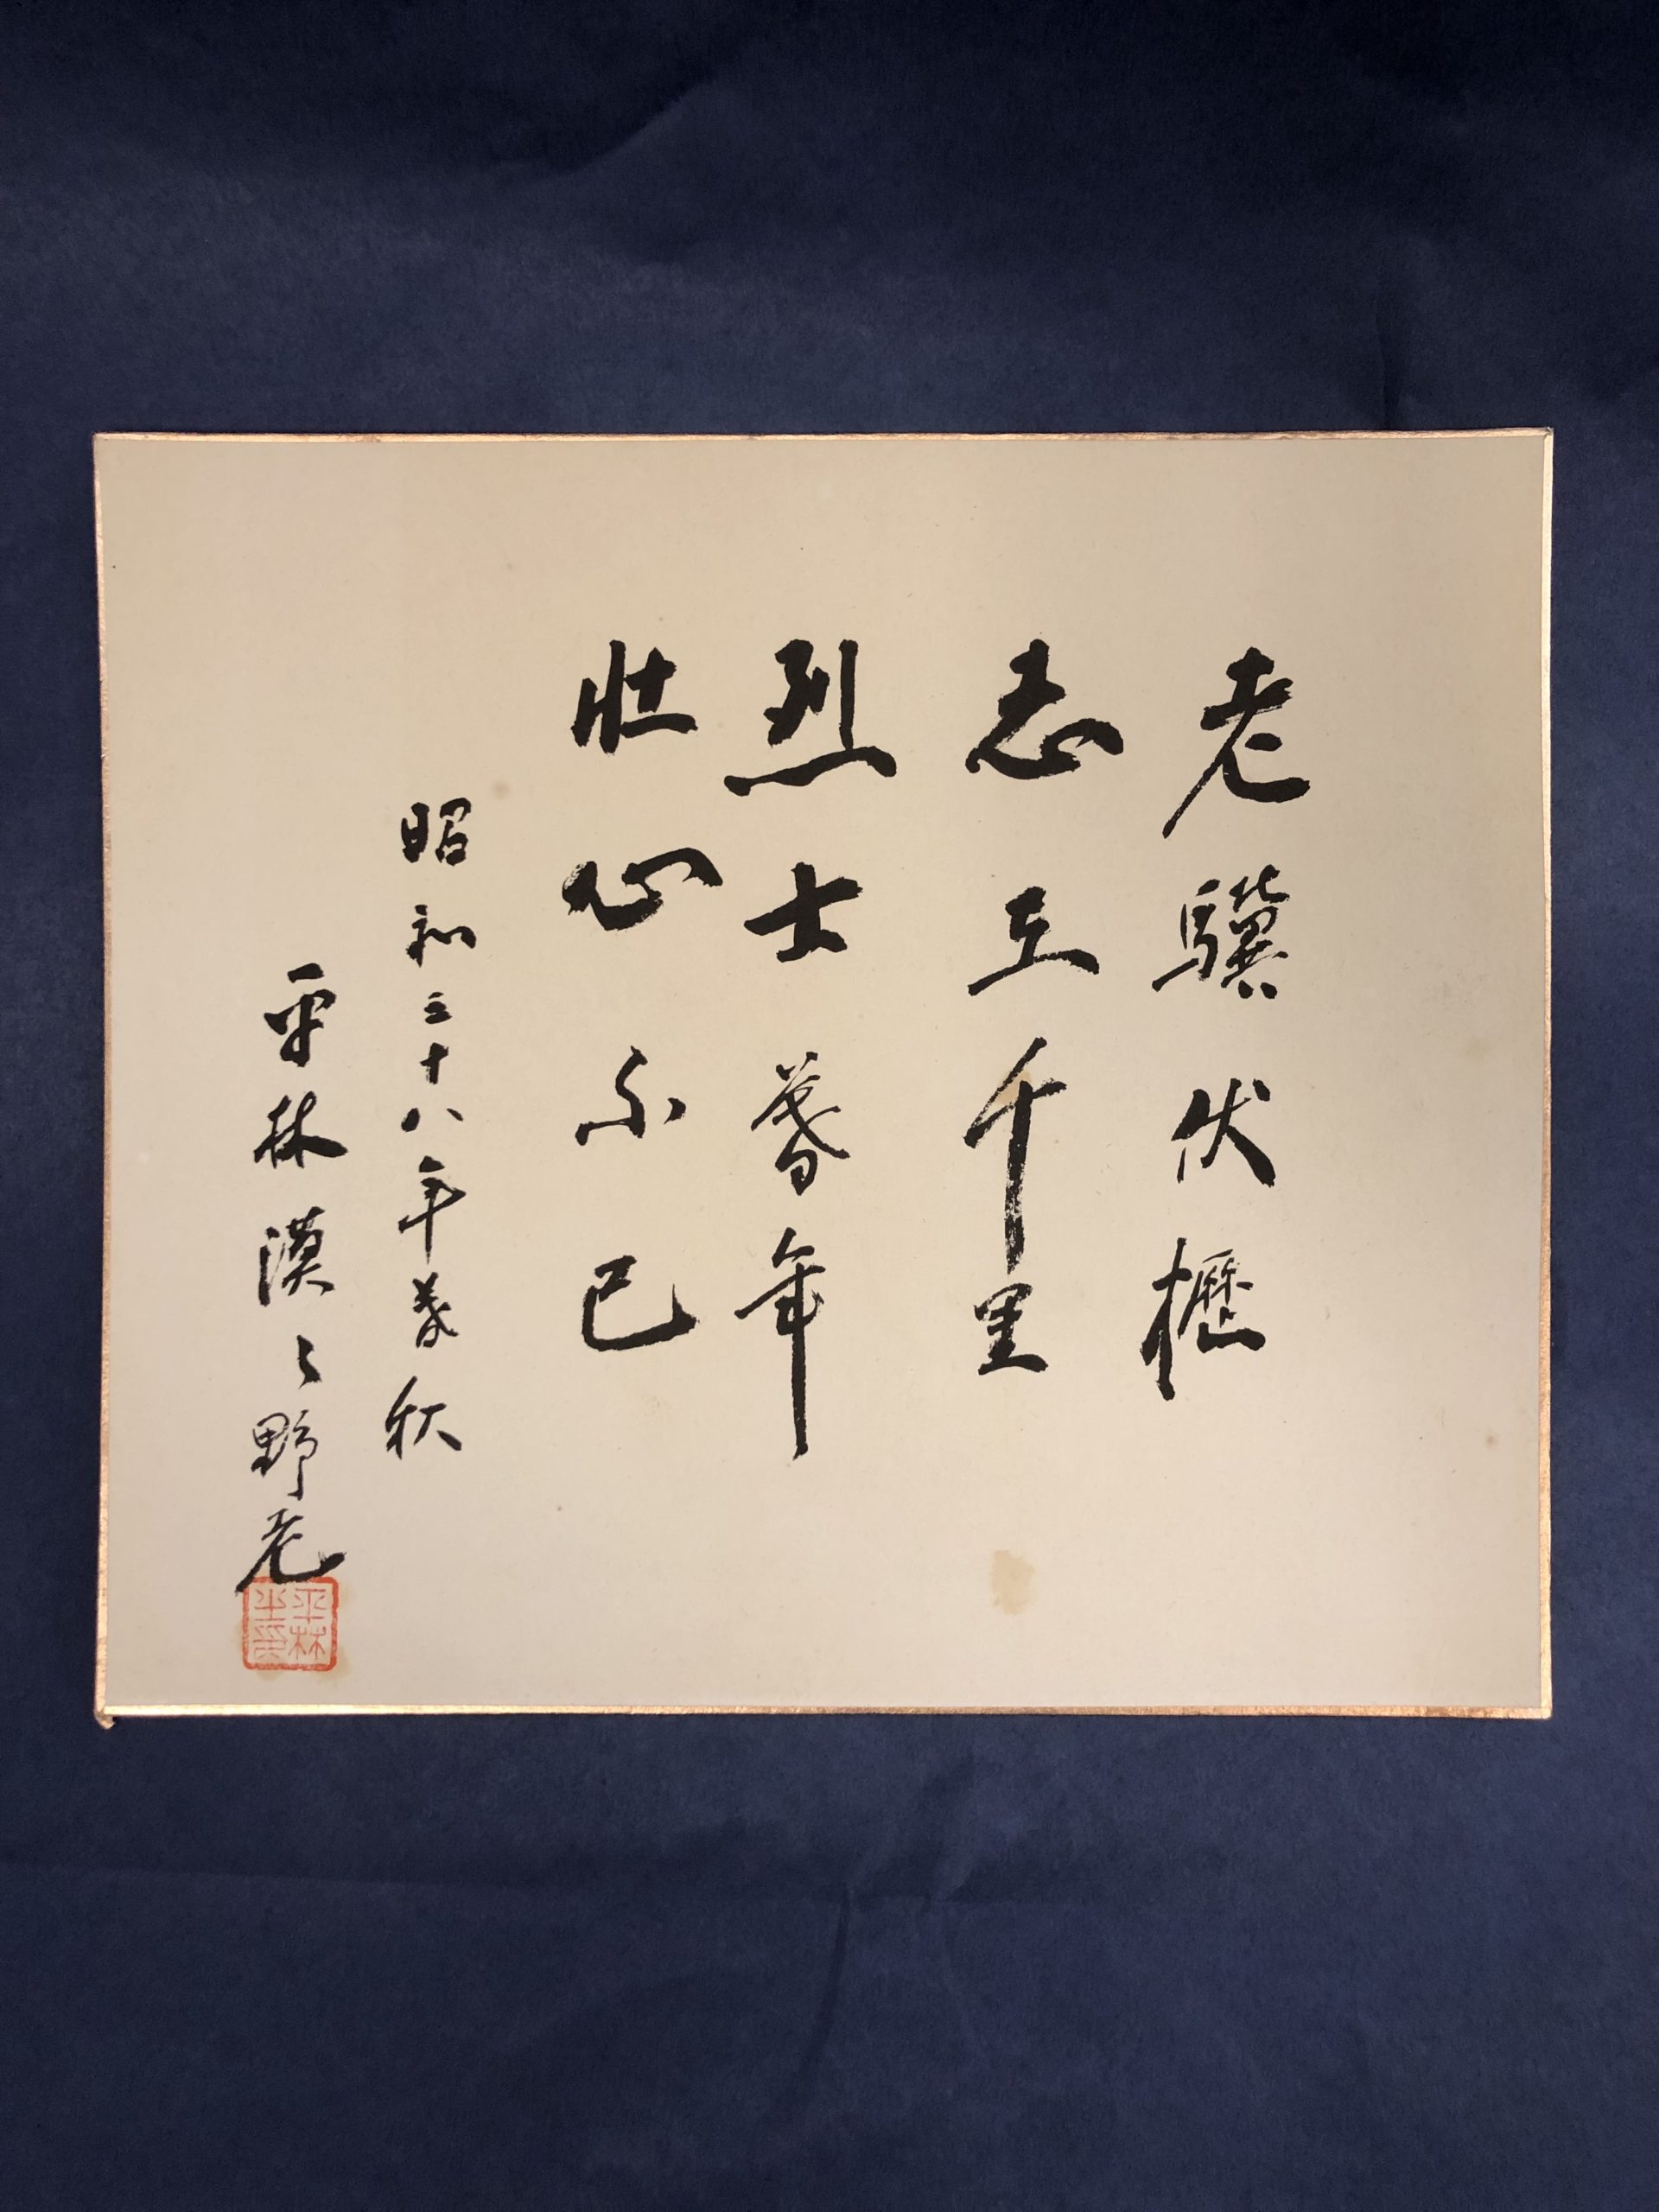 老驥伏櫪
志在千里
烈士暮年
壮心不已
昭和三十八年暮秋
平林漠々野老
平林
之印